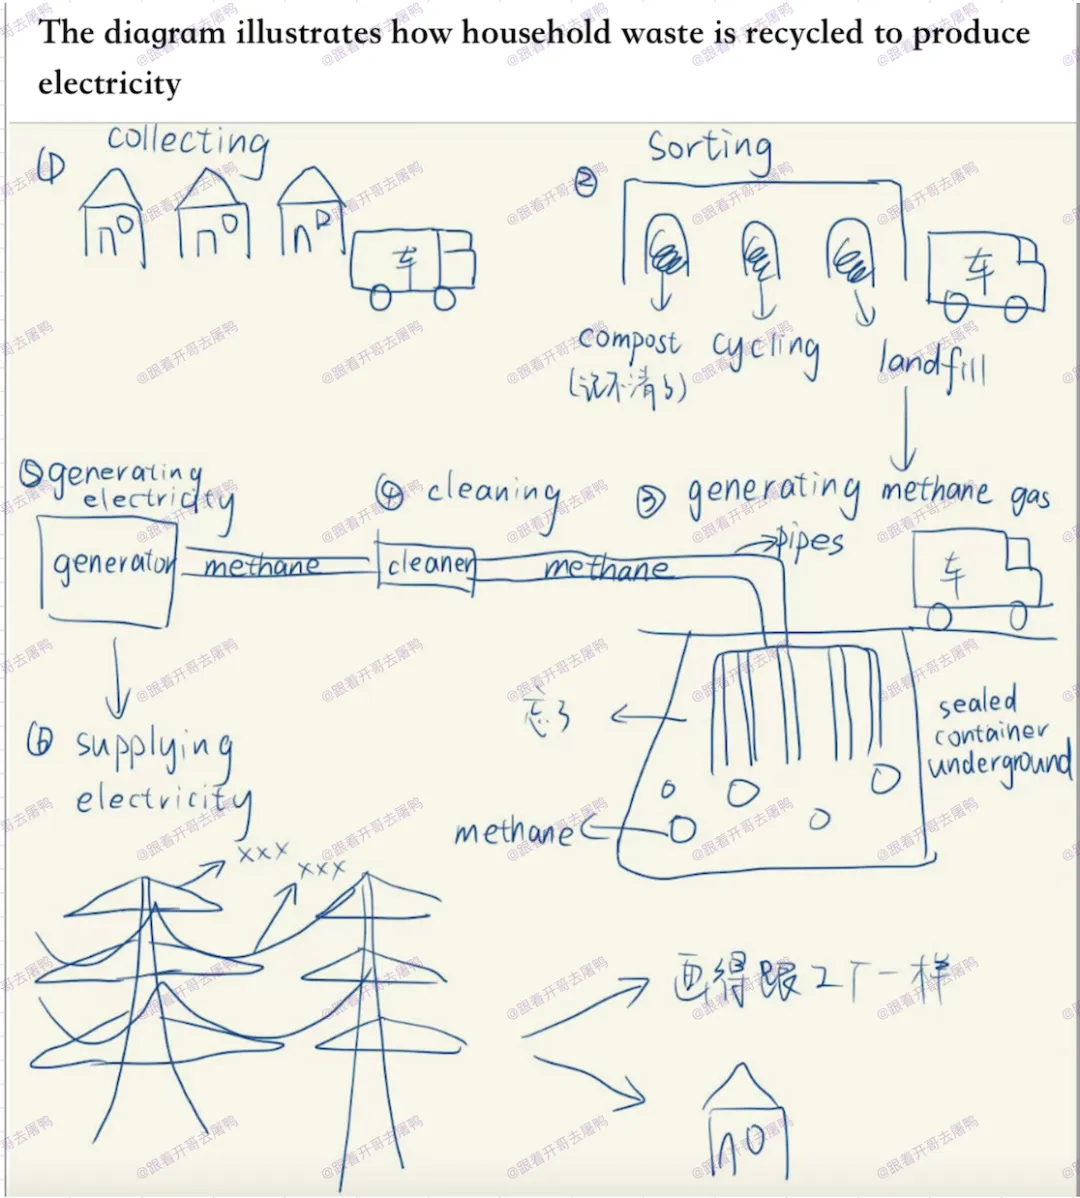 The diagram illustrates how household waste is recycled to produce
electricity
① collecting
车
② Sorting
车
compost
(记不清了)
cycling
landfill
③ generating methane gas
车
pipes
methane
④ cleaning
cleaner
methane
⑤ generating
electricity
generator
忘了
sealed
container
underground
methane
⑥ supplying
electricity
xxx
xxx
画得跟工厂一样
@跟着开哥去屠鸭